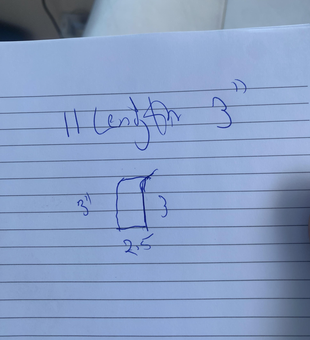 11 Length 3"
3" 3
2.5